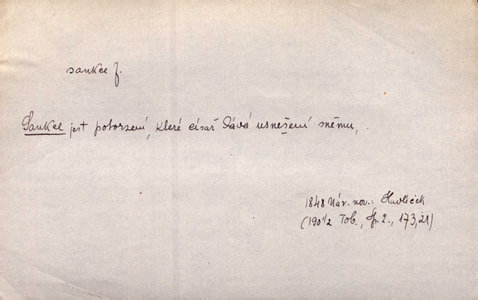 sankce f.
Sankce jest potvrzení, které císař dává usnešení sněmu,
1848 Nár. nov.: Havlíček
(1901/2 Tob., Sp. 2., 173,21)